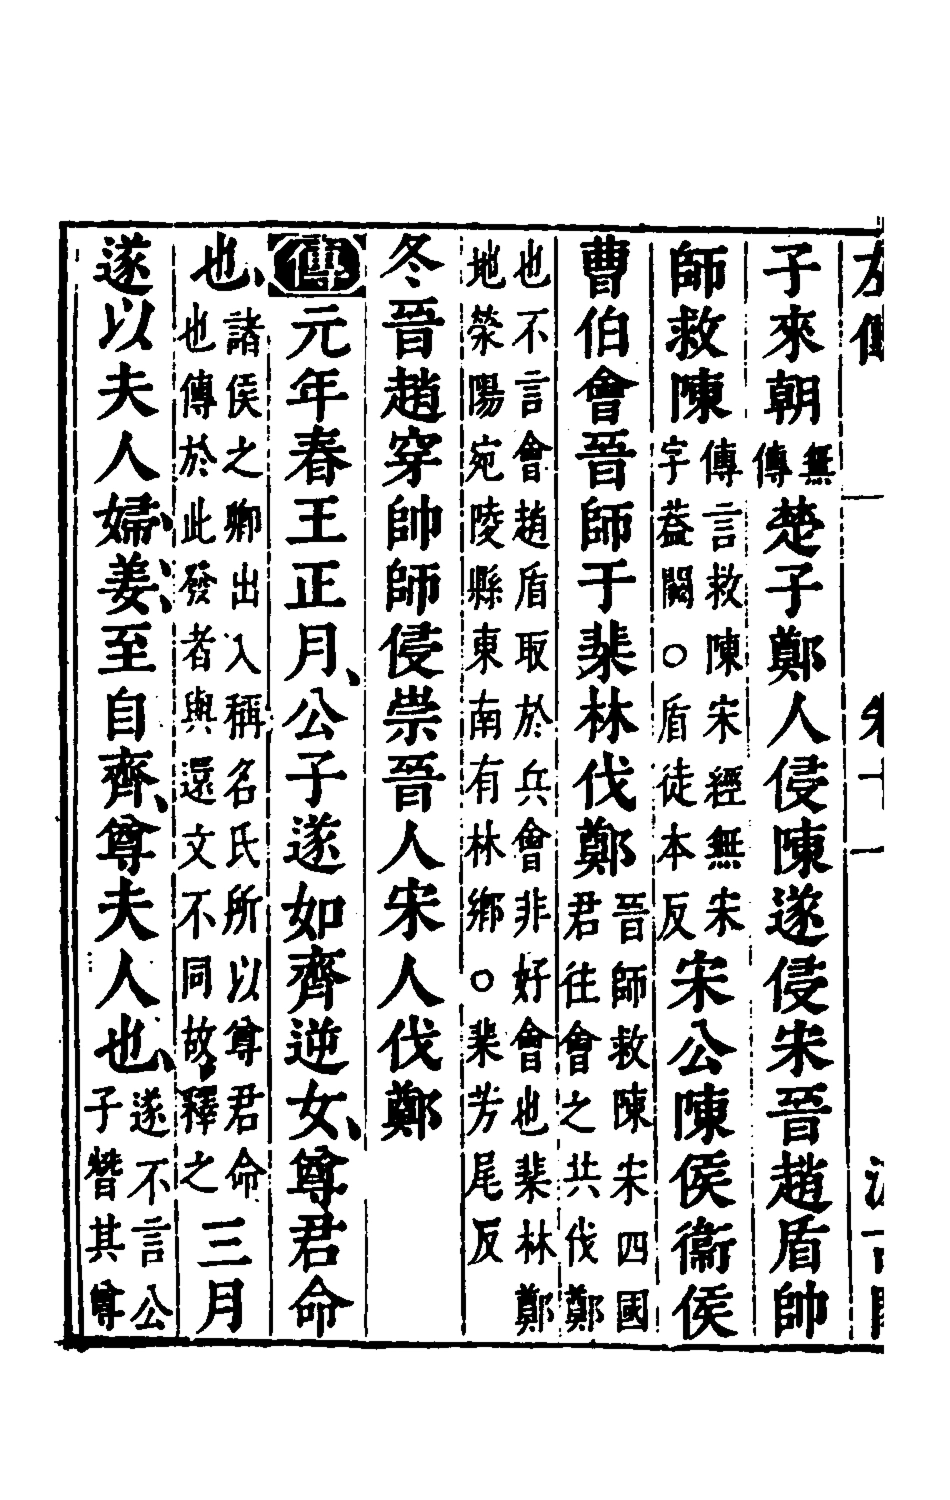 子來朝無傳楚子鄭人侵陳遂侵宋晉趙盾帥
師救陳傳言救陳宋經無宋字葢闕○盾徒本反宋公陳侯衞侯
曹伯會晉師于棐林伐鄭晉師救陳宋四國君往會之共伐鄭
也不言會趙盾取於兵會非好會也棐林鄭地滎陽宛陵縣東南有林鄉○棐芳尾反
冬晉趙穿帥師侵崇晉人宋人伐鄭
傳元年春王正月、公子遂如齊逆女、尊君命
也、諸侯之卿出入稱名氏所以尊君命也傳於此發者與還文不同故釋之三月
遂以夫人婦、姜、至自齊、尊夫人也、遂不言公子替其尊